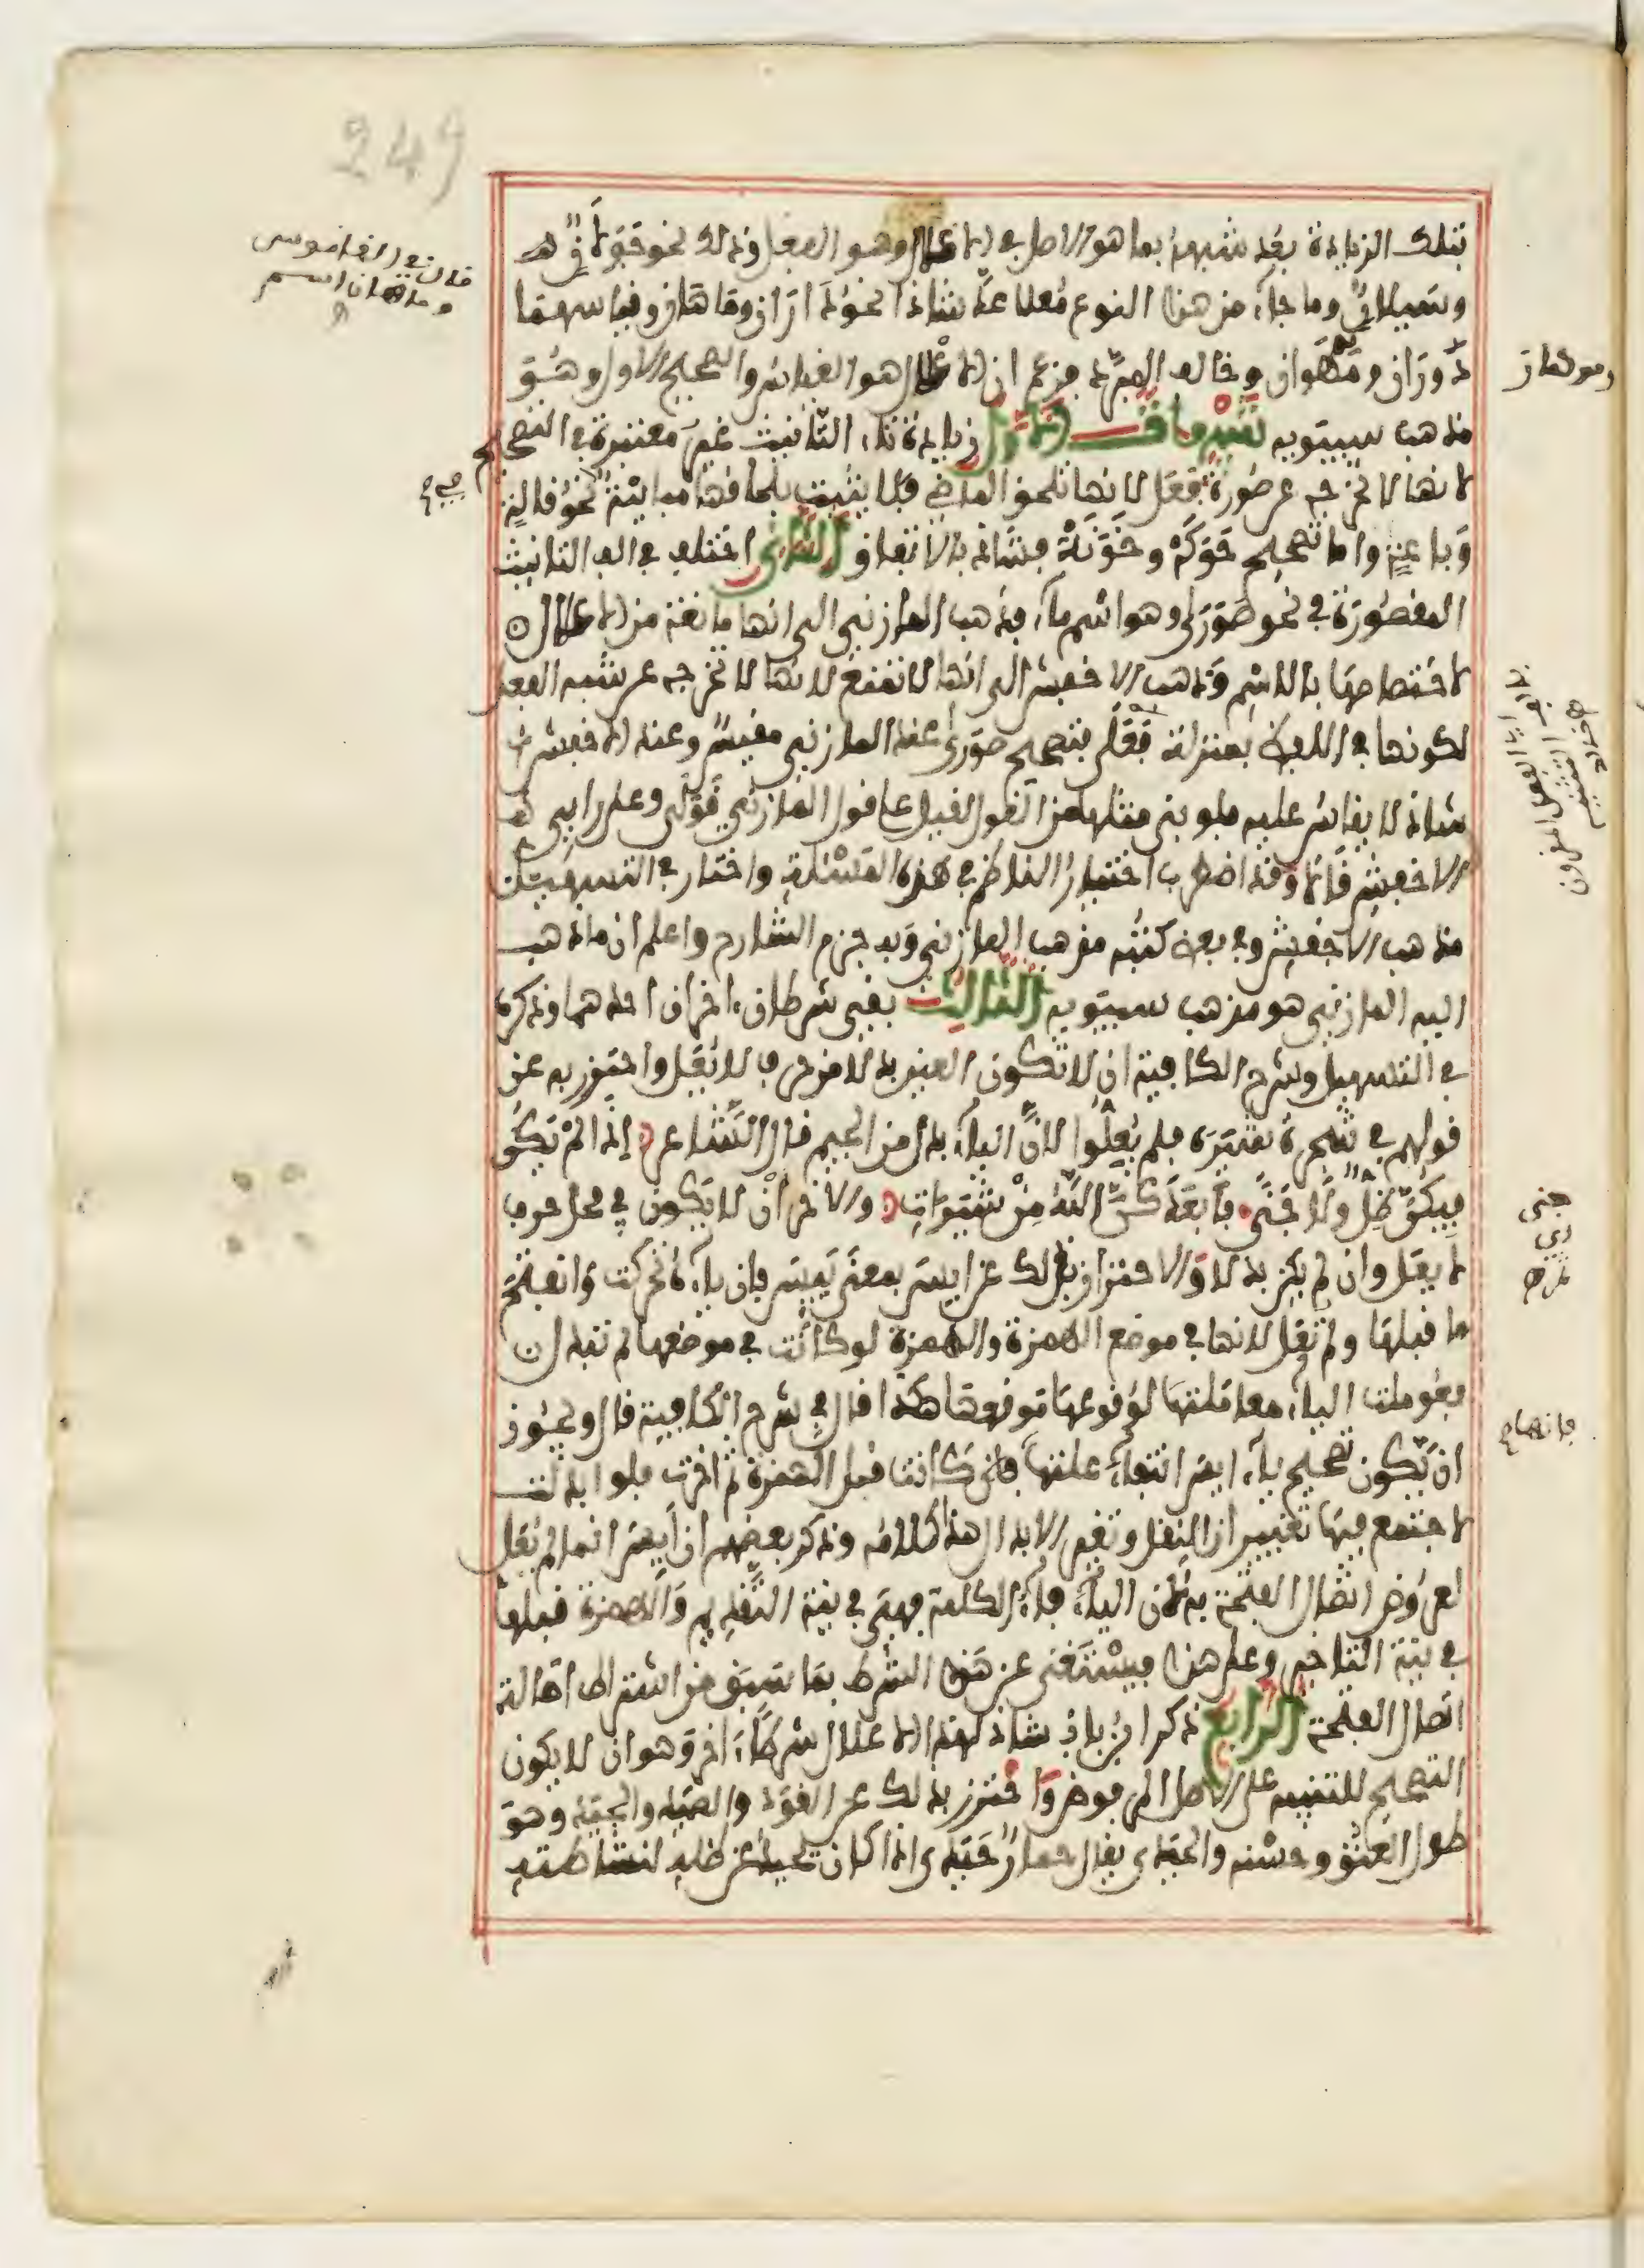 249
بتلك الزيادة بعد شبهه بما هو الاصل في الاعلال وهو الفعل وذلك نحو جَوَلَانٍ
وسَيَلانٍ وما جاء من هذا النوع مُعَلا عُدّ شاذا نحو دَارَان ومَاهَان وقياسهما
دَوَرَان ومَوَهَان وخالف المبرد فزعم ان الاعلال هو القياس والصحيح الاول وهو
مذهب سيبويه تنبيهات الاول زيادة تاء التانيث غير معتبرة في التصحيح
لانها لا تخرجه عن صورة فَعَل لانها تلحق الماضي فلا يثبت بلحاقها مباينة نحو قالة
وباعة واما تصحيح حَوَكَة وخَوَنَة فشاذ بالاتفاق الثاني اختلف في الف التانيث
المقصورة في نحو صَوَرَى وهو اسم ماء فذهب المازني الى انها مانعة من الاعلال
لاختصاصها بالاسم وذهب الاخفش الى انها لا تمنع لانها لا تخرجه عن شبه الفعل
لكونها في اللفظ بمنزلة فَعَلَا فتصحيح صورى عند المازني مقيس وعند الاخفش
شاذ لا يقاس عليه فلو بنى مثلها من القول لقيل على قول المازني قَوَلَى وعلى راي
الاخفش قَالَا وقد اضطرب اختيار الناظم في هذه المسئلة واختار في التسهيل
مذهب الاخفش وفي بعض كتبه مذهب المازني وبه جزم الشارح واعلم ان ما ذهب
اليه المازني هو مذهب سيبويه الثالث بقي شرطان اخران احدهما وذكره
في التسهيل وشرح الكافية ان لا تكون العين بدلا من حرف لا يعل واحترز به عن
قولهم في شجرة شِيَرَة فلم يعلوا لان الياء بدل من الجيم قال الشاعر اذا لم يكن
فيكن ظل ولا جنى فابعدكن الله من شِيَرات والاخر ان لا يكون في محل حرف
لا يعل وان لم يكن بدلا والاحتراز بذلك عن ايس بمعنى يئس فان ياءه تحركت وانفتح
ما قبلها ولم تعل لانها في موضع الهمزة والهمزة لو كانت في موضعها لم تبدل
فعوملت الياء معاملتها لوقوعها موقعها هكذا قال في شرح الكافية قال ويجوز
ان يكون تصحيح ياء ايس انتفاء علتها فانها كانت قبل الهمزة ثم اخرت فلو ابدلت
لاجتمع فيها تغييران النقل وتغيير الابدال هذا كلامه وذكر بعضهم ان ايس انما لم يعل
لعروض اتصال الفتحة به لان الياء فاء الكلمة فهي في نية التقديم والهمزة قبلها
في نية التاخير وعلى هذا فيستغنى عن هذا الشرط بما سبق من اشتراط اصالة
اتصال الفتحة الرابع ذكر ابن بابشاذ لهذا الاعلال شرطا اخر وهو ان لا يكون
التصحيح للتنبيه على الاصل المرفوض واحترز بذلك عن القود والصيد والحيد وهو
طول العنق وحسنه والحيدى يقال حمار حيدى اذا كان يحيد عن ظله لنشاطه
قال في القاموس
وماهان اسم
وموهان
جنى
فانها